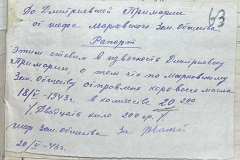 63
До Дмитриевней Примарии
от шефа Марковского Зем. Общества
Рапорт
Этим ставим в известность Дмитриевну
Примарию, о том что по Марковскому
Зем. Обществу отправлено коровьего масла
18/V-1943г в количестве 20 200
Двадцать кило 200 гр.
Шеф Зем. общества За
20/V-43г.